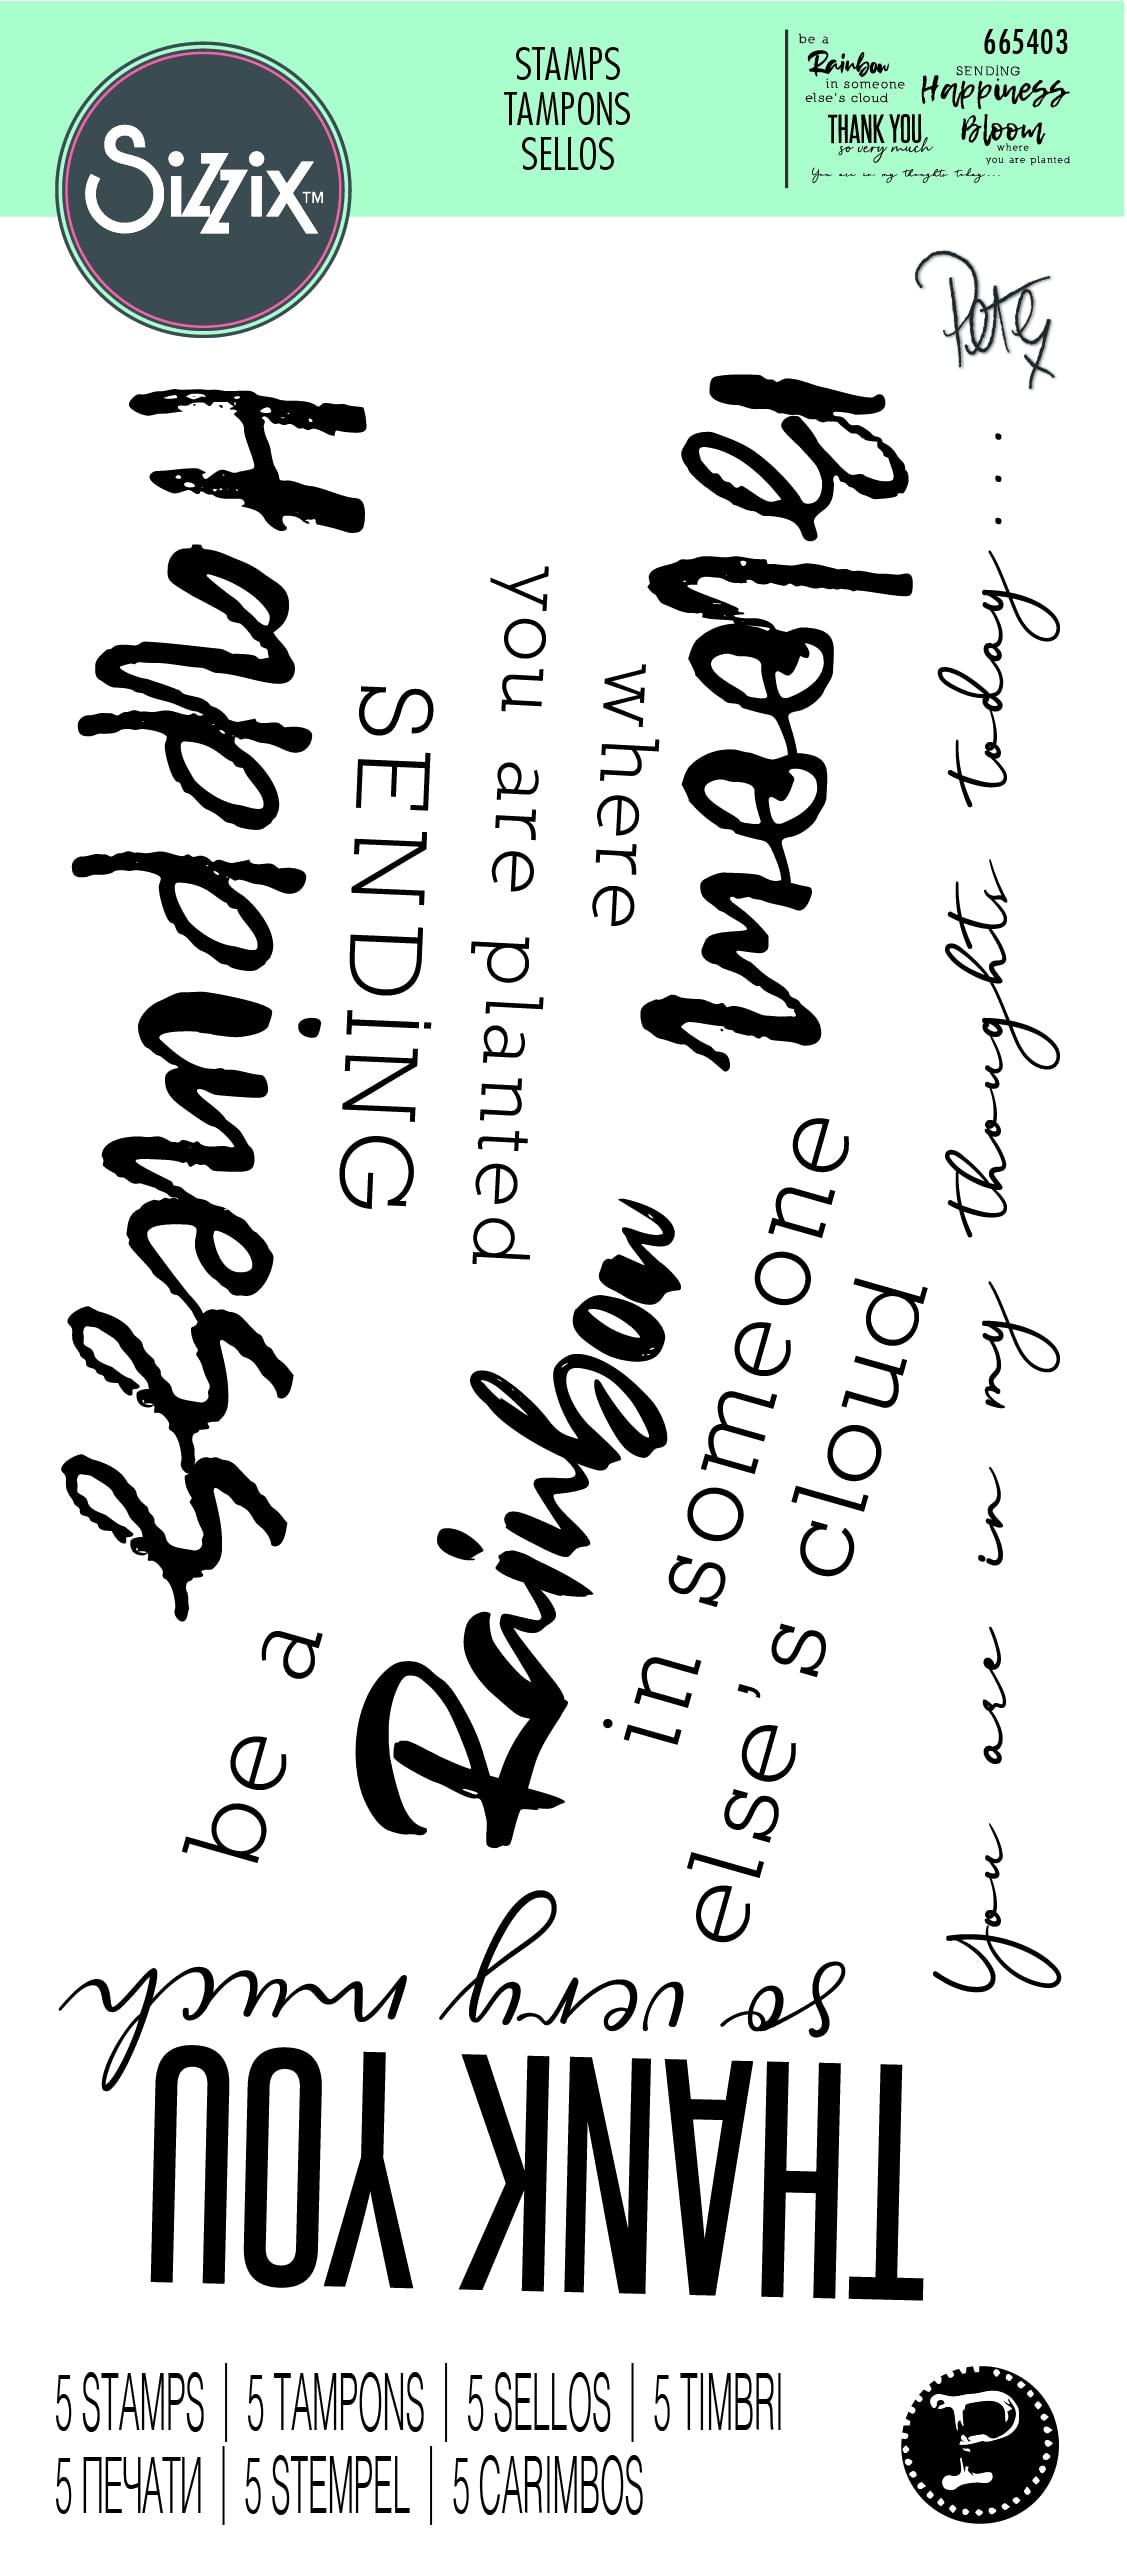 Sizzix™
STAMPS
TAMPONS
SELLOS
665403
be a
Rainbow
in someone
else's cloud
SENDiNG
Happiness
THANK YOU
so very much
Bloom
where
you are planted
You are in my thoughts today...
Pete x
SENDiNG
Happiness
Bloom
where
you are planted
be a
Rainbow
in someone
else's cloud
You are in my thoughts today...
THANK YOU
so very much
5 STAMPS | 5 TAMPONS | 5 SELLOS | 5 TIMBRI
5 ПЕЧАТИ | 5 STEMPEL | 5 CARIMBOS
P